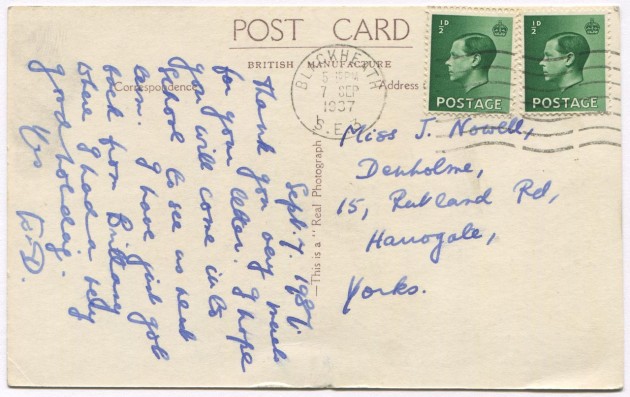 POST CARD
BRITISH MANUFACTURE
Correspondence
Address
—This is a "Real Photograph"
BLACKHEATH
5 15PM
7 SEP
1937
S.E.3
½D
POSTAGE
½D
POSTAGE
Sept. 7. 1937.
Thank you very much
for your letter. I hope
you will come in to
School to see us next
term. I have just got
back from Brittany
where I had a very
good holiday.
Yrs
Miss J. Nowell,
Denholme,
15, Rutland Rd,
Harrogate,
Yorks.